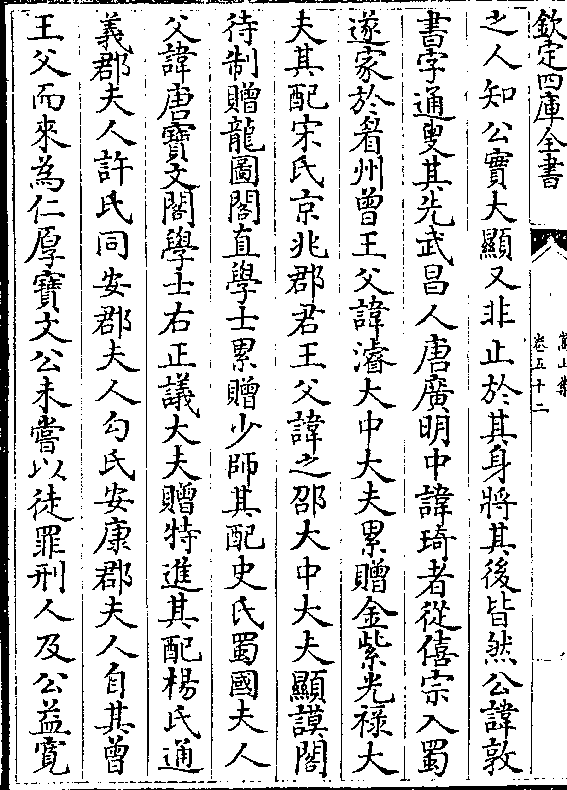 欽定四庫全書
卷五十二
之人知公實大顯又非止於其身將其後皆然公諱敦
書字通叟其先武昌人唐廣明中諱琦者從僖宗入蜀
遂家於眉州曾王父諱濬大中大夫累贈金紫光祿大
夫其配宋氏京兆郡君王父諱之邵大中大夫顯謨閣
待制贈龍圖閣直學士累贈少師其配史氏蜀國夫人
父諱唐寶文閣學士右正議大夫贈特進其配楊氏通
義郡夫人許氏同安郡夫人勾氏安康郡夫人自其曾
王父而來為仁厚寶文公未嘗以徒罪刑人及公益寬